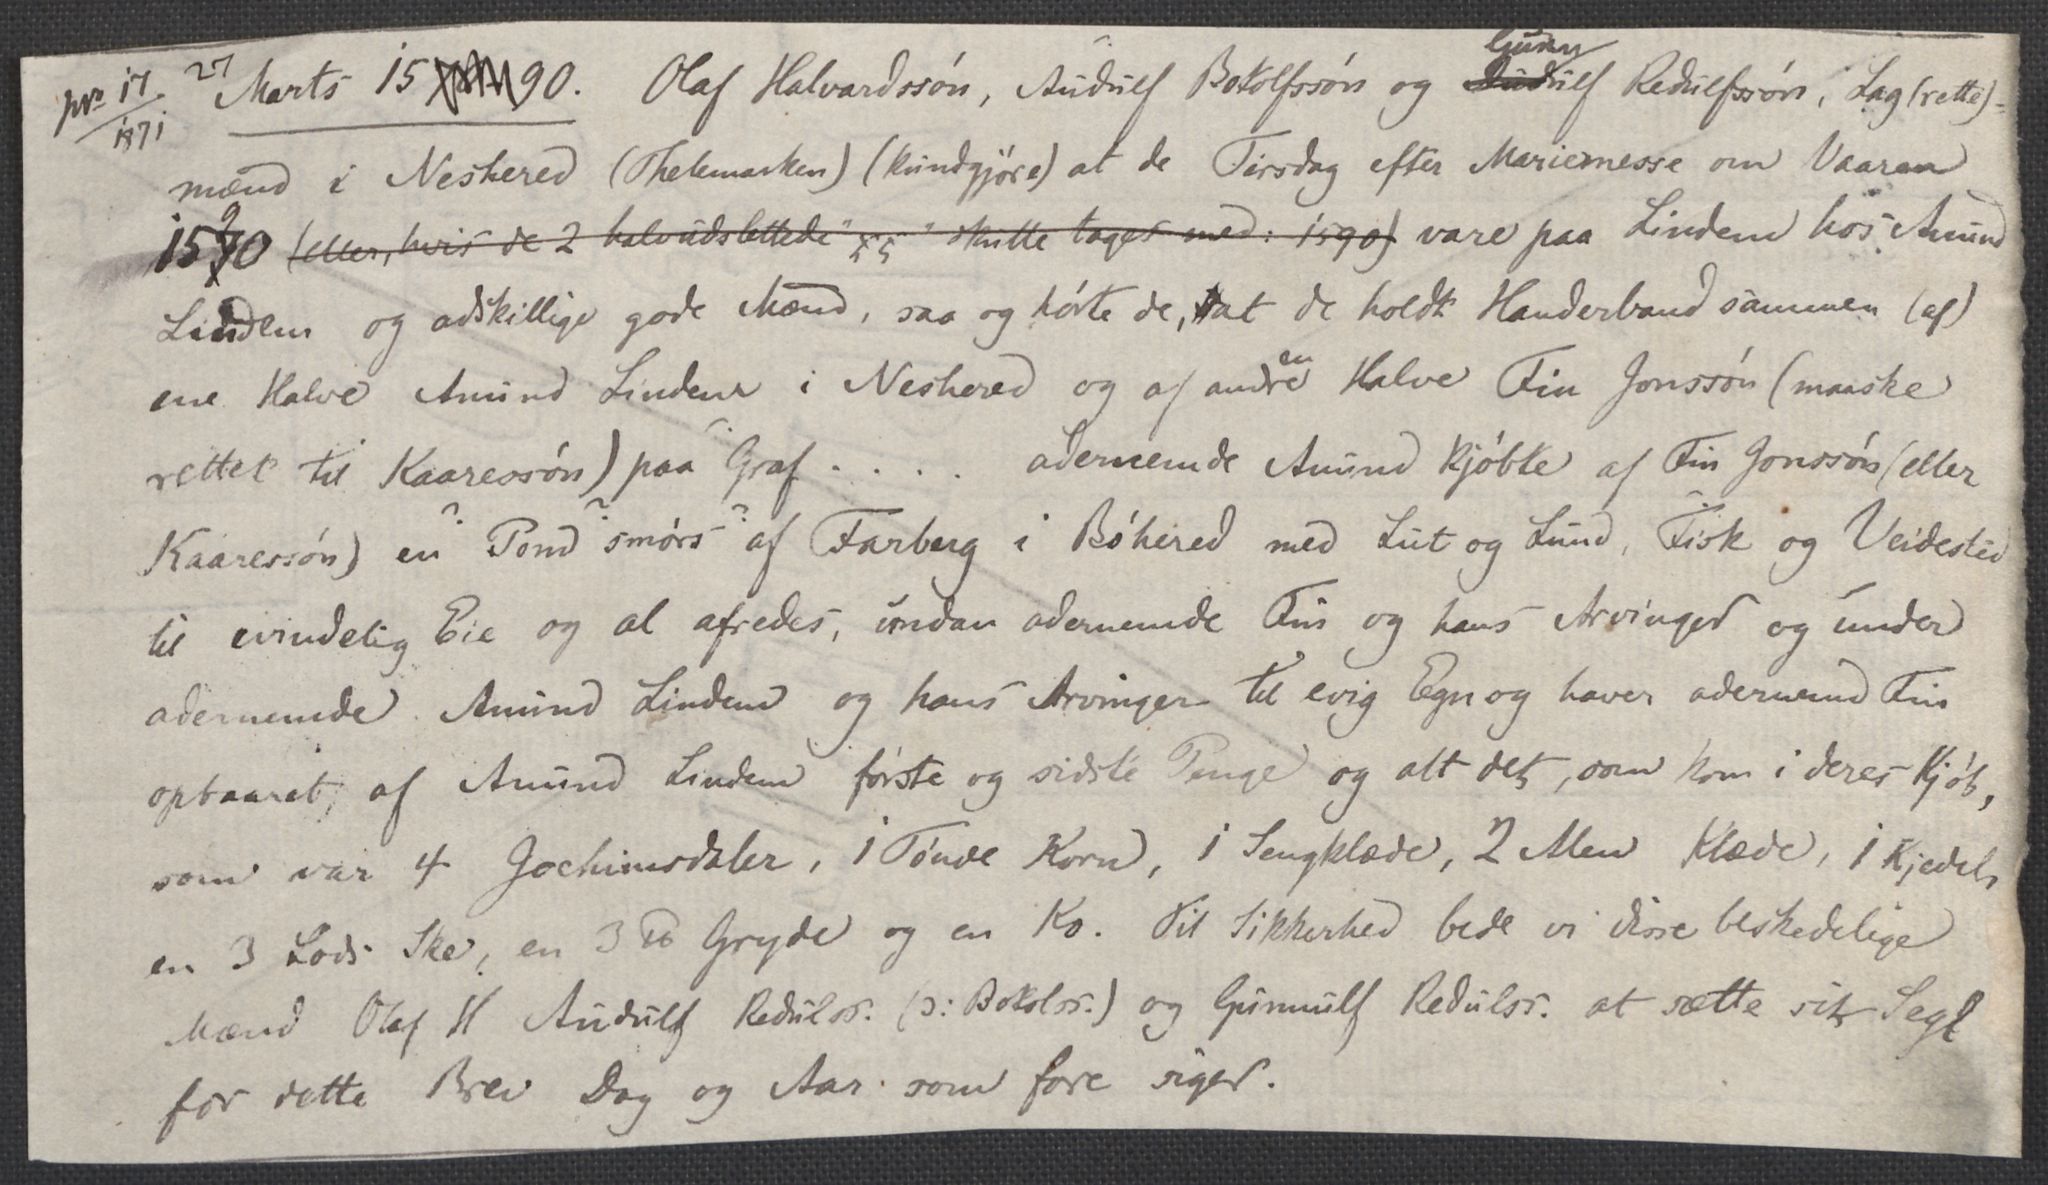 pr 17/1871
27 Marts 1590. Olaf Halvardssön, Audulf Bokolfssön og Gunulf Redulfssön, Lag(rette)-
mænd i Neshered (Thelemarken) (kundgjöre) at de Tirsdag efter Mariemesse om Vaaren
1590 (eller, hvis de 2 halvudslettede "xx" skulle tages med: 1590) vare paa Lindem hos Amund
Lindem og adskillige gode Mænd, saa og hörte de, at de holdt Handerband sammen (af)
ene Halve Amund Lindem i Neshered og af andre en Halve Fin Jonssön (maaske
rettet til Kaaressön) paa Graf . . . . adernemde Amund kjöbte af Fin Jonssön (eller
Kaaressön) en Pond smörs af Farberg i Böhered med Lut og Lund, Fisk og Veidested
til evindelig Eie og al afredes, undan adernemde Fin og hans Arvinger og under
adernemde Amund Lindem og hans Arvinger til evig Egn og haver adernemd Fin
opbaaret af Amund Lindem förste og sidste Penge og alt det, som kom i deres Kjöb,
som var 4 Jochimsdaler, 1 Tönde Korn, 1 Sengklæde, 2 Alen Klæde, 1 Kjedel,
en 3 Lods Ske, en 3 ℔ Gryde og en Ko. Til Sikkerhed bede vi disse beskedelige
Mænd Olaf H Audulf Redulss. (ɔ: Bokolss.) og Gunnulf Redulss. at sætte sit Segl
for dette Brev Dag og Aar som fore siger.